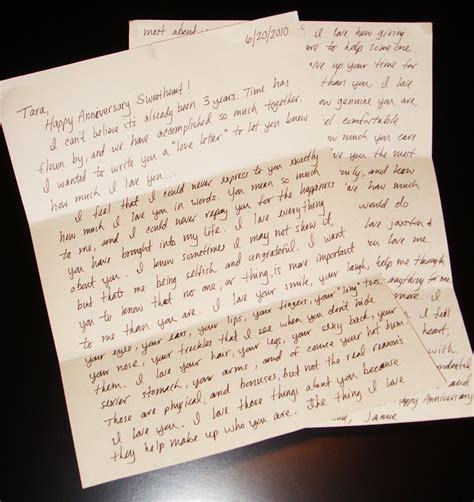 6/20/2010
Tara,
Happy Anniversary Sweetheart!
I can't believe its already been 3 years. Time has
flown by, and we have accomplished so much together.
I wanted to write you a "love letter" to let you know
how much I love you...
I feel that I could never express to you exactly
how much I love you in words. You mean so much
to me, and I could never repay you for the happiness
you have brought into my life. I love everything
about you. I know sometimes I may not show it,
but thats me being selfish and ungrateful. I want
you to know that no one, or thing, is more important
to me than you are. I love your smile, your laugh,
your eyes, your ears, your lips, your fingers, your "long" toes,
your nose, your freckles that I see when you don't hide
them. I love your hair, your legs, your sexy back, your
sexier stomach, your arms, and of course your hot bum.
Those are physical, and bonuses, but not the real reasons
I love you. I love those things about you because
they help make up who you are. The thing I love
most about
I love how giving
are to help someone
give up your time for
than you. I love
how genuine you are,
feel comfortable
how much you care
ve you the most
and know
ve how much
would do
love jaxston &
en love me.
help me through
anything for me
more. I
I feel
heart,
with
wonderful
and
Happy Anniversary
Jamie